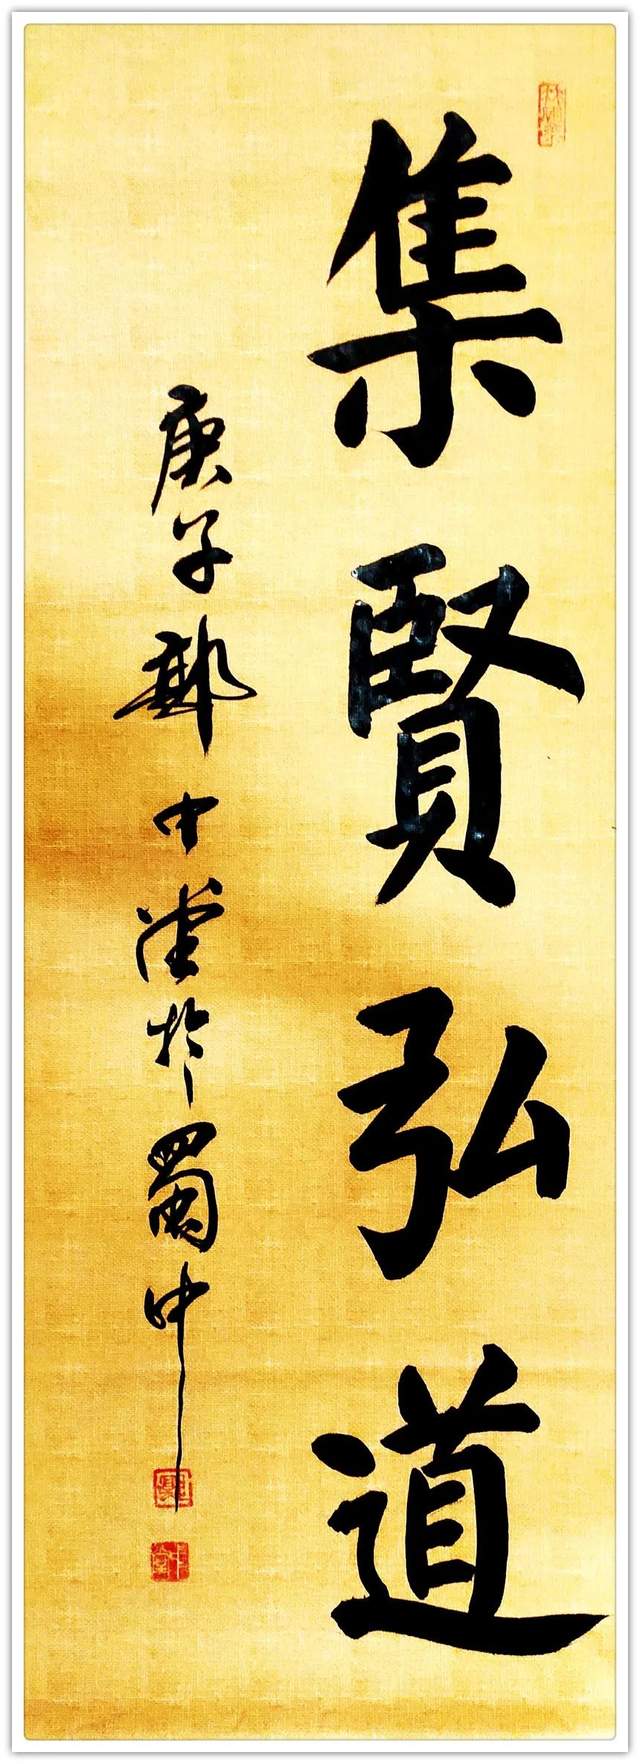 集賢弘道
庚子鄭中堂於蜀中